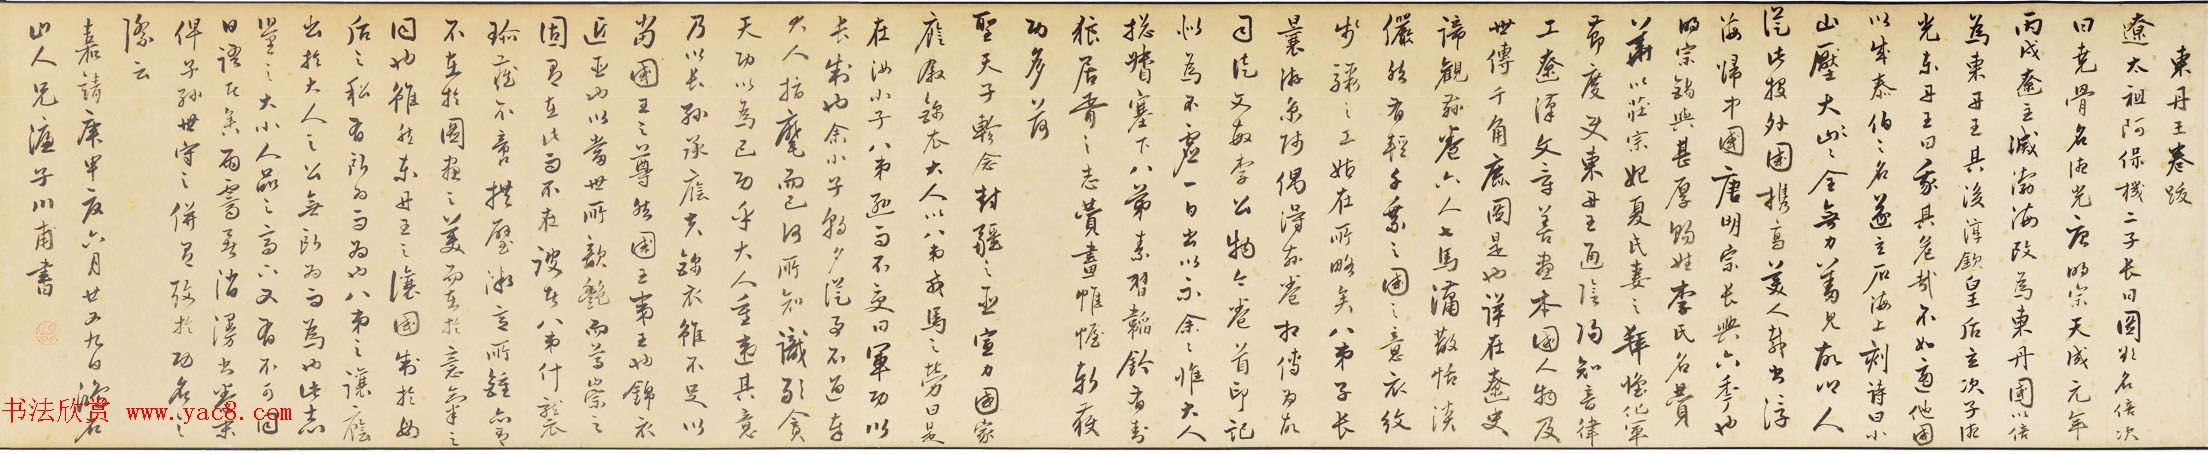 東丹王卷跋
遼太祖阿保機二子長曰圖欲名倍次
曰堯骨名德光唐明宗天成元年
丙戌遼主滅渤海改為東丹國以倍
為東丹王其後淳欽皇后立次子德
光東丹王曰我其危哉不如適他國
以成泰伯之名遂立石海上刻詩曰小
山壓大山大山全無力羞見故鄉人
從此投外國携高美人載書浮
海歸中國唐明宗長興六季也
明宗錫與甚厚賜姓李氏名贊
華以莊宗妃夏氏妻之拜懷化軍
節度史東丹王通陰陽知音律
工遼漢文章善畫本國人物及
世傳千角鹿圖是也詳在遼史
諦觀茲卷六人七馬瀟散恬淡
儼然有輕千乘之國之意衣紋
步驟之工姑在所略矣八弟子長
曩游京師偶得茲卷相傳為故
司徒文敏李公物今卷首印記
似為不虛一日出以示余惟大人
總聵塞下八弟素習韜鈐有封
狼居胥之志贊畫帷幄斬獲
功多蒙
聖天子軫念封疆之臣宣力國家
應敘錦衣大人以八弟戎馬之勞曰是
在汝小子八弟遜而不受曰軍功以
長制也余小子朝夕從事不過奉
大人指麾而已何所知識敢貪
天功以為己功乎大人重違其意
乃以長孫承廕夫錦衣雖不足以
尚國王之尊然國王弟王也錦衣
近臣也以當世所歆艷而尊崇之
固有在此而不在彼者八弟什襲
珍藏不啻拱璧游意所鍾亦有
不在於圖畫之美而在於意氣之
同也雖然東丹王之讓國制於母
后之私有所為而為也八弟之讓廕
出於大人之公無所為而為也此志
量之大小人品之高下又有不可同
日語者矣雨窗無消漫書卷末
俾子孫世守之併有致於功名之
際云
嘉靖庚申夏六月廿又九日濟名
山人兄濂子川甫書
书法欣赏 www.yac8.com